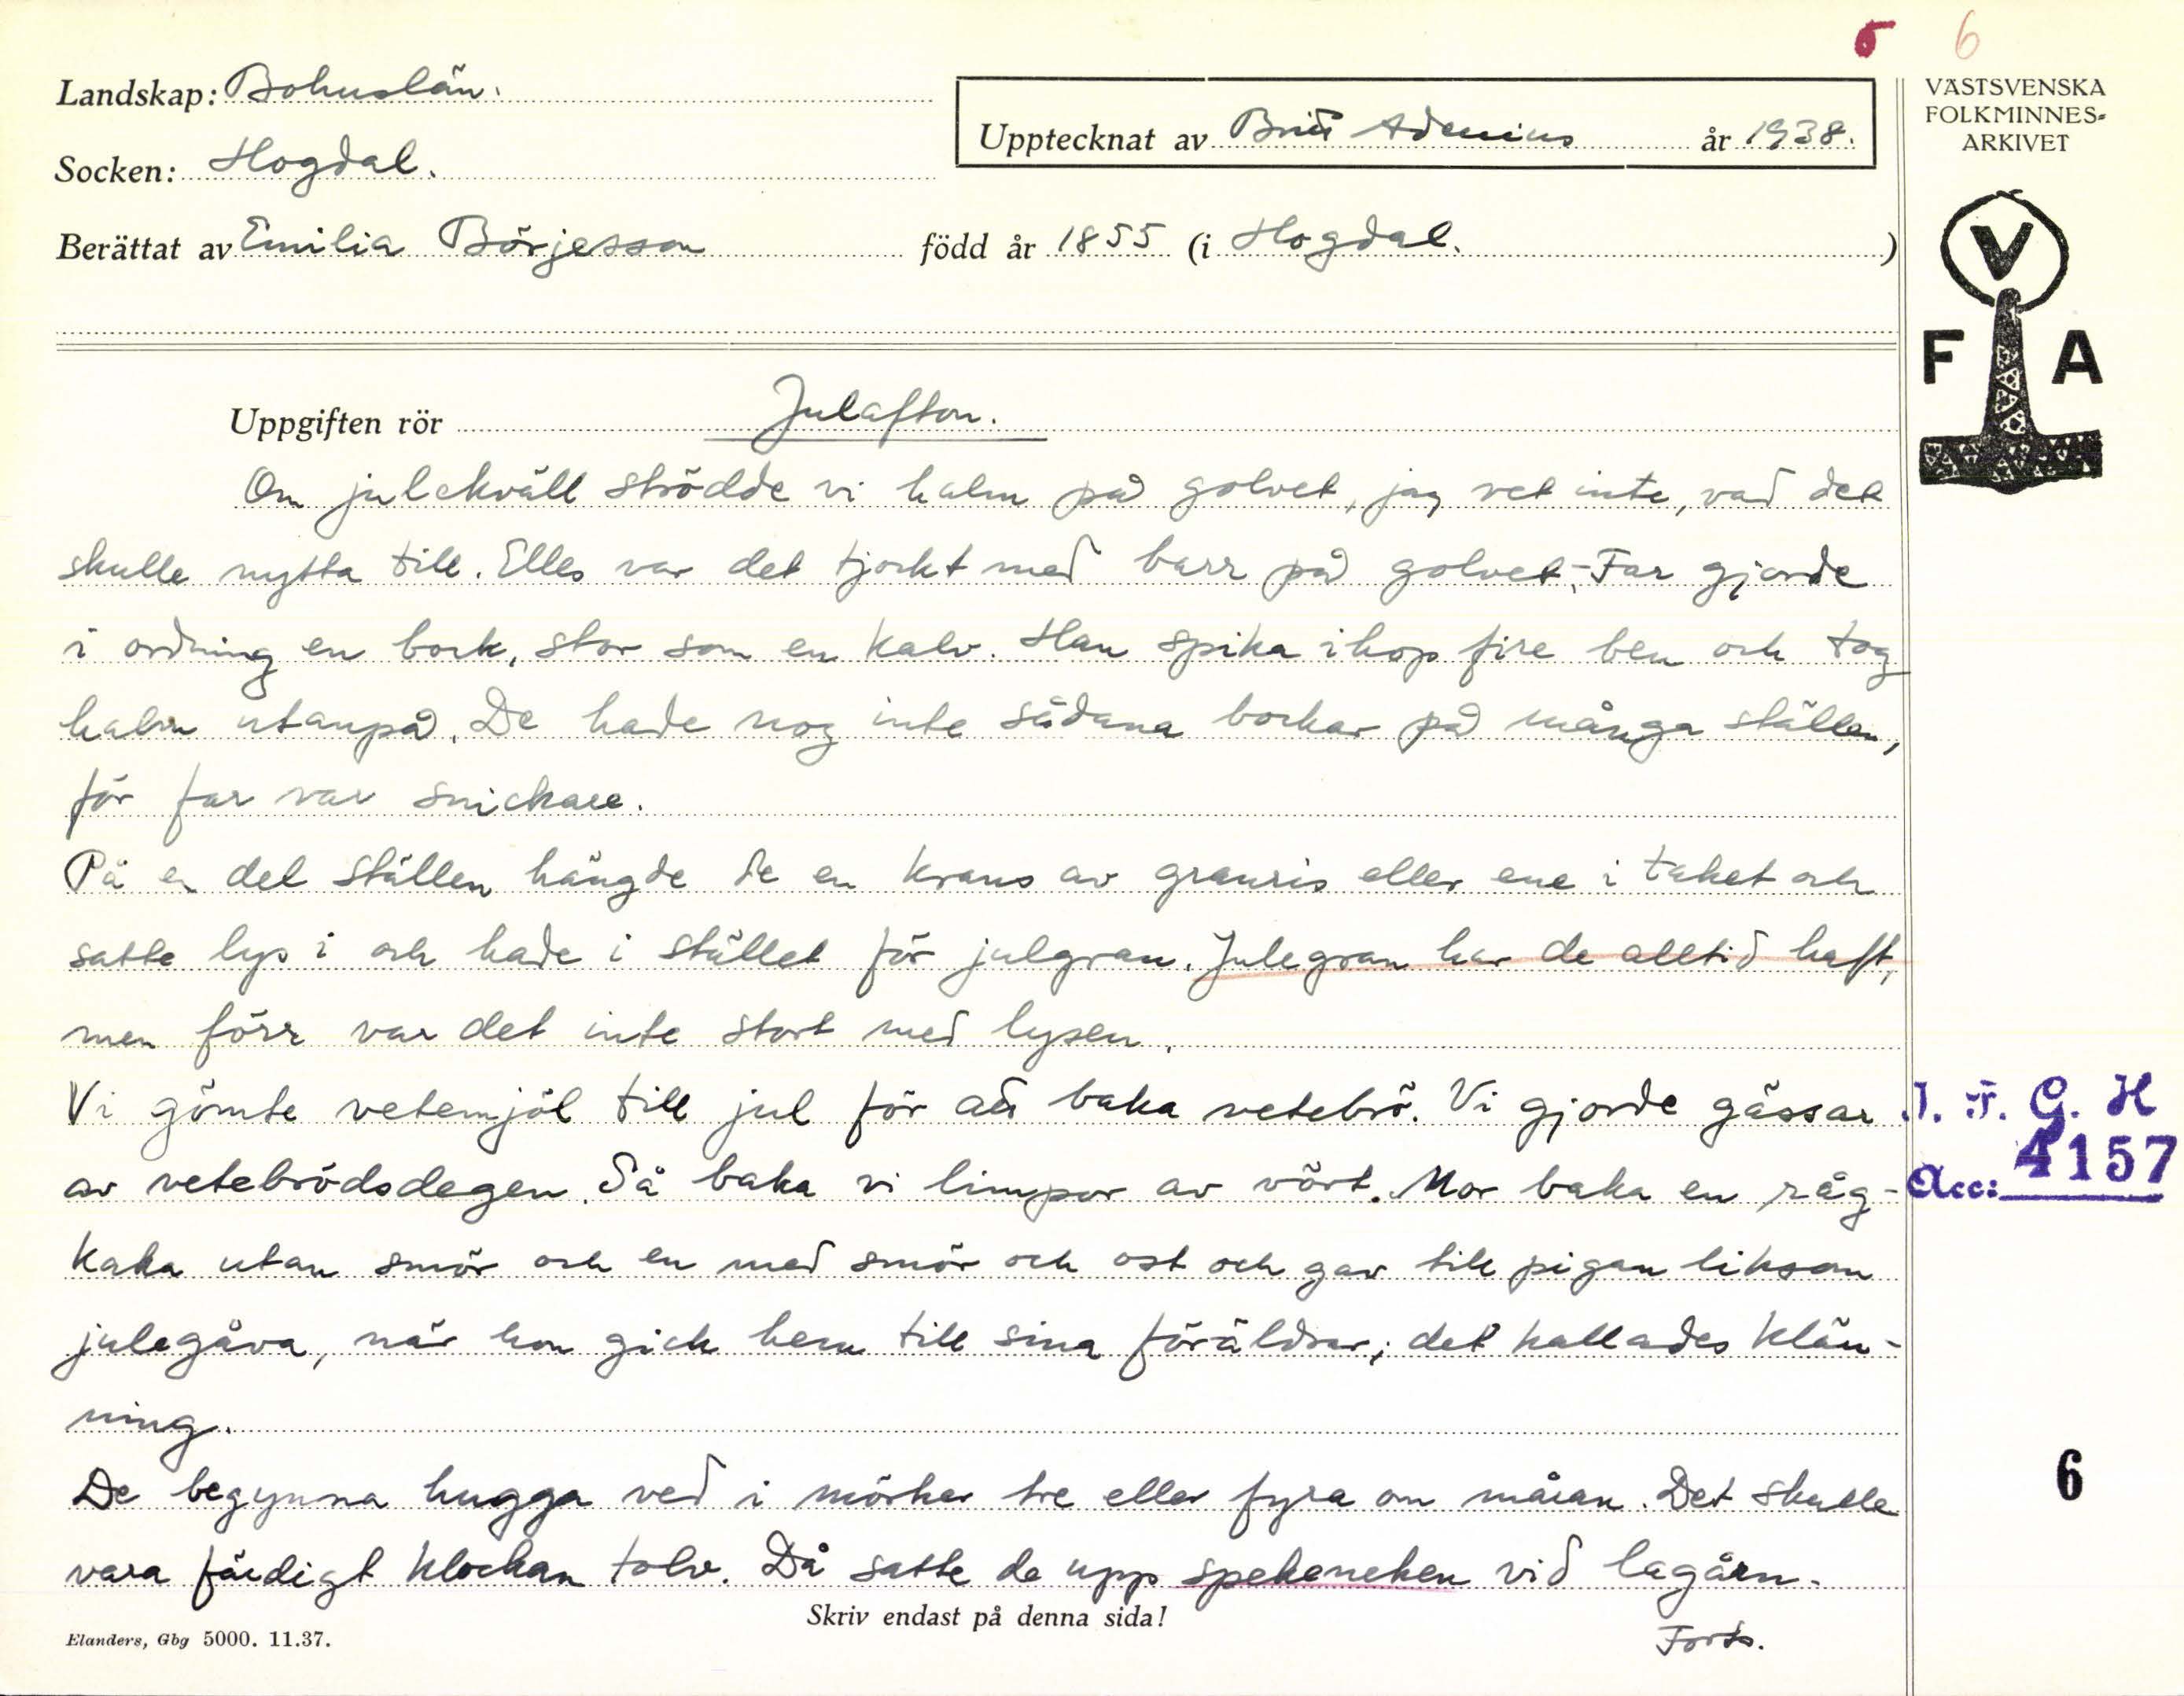 5 6
Landskap: Bohuslän.
Socken: Hogdal.
Upptecknat av Britt Adenius år 1938.
Berättat av Emilia Börjesson född år 1855 (i Hogdal.)
VÄSTSVENSKA
FOLKMINNES-
ARKIVET
V
F A
Uppgiften rör Julafton.
Om julekväll strödde vi halm på golvet, jag vet inte, vad det
skulle nytta till. Elles var det tjockt med barr på golvet. - Far gjorde
i ordning en bock, stor som en kalv. Han spika ihop fire ben och tog
halm utanpå. De hade nog inte sådana bockar på många ställen,
för far var snickare.
På en del ställen hängde de en krans av granris eller ene i taket och
satte lys i och hade i stället för julgran. Julegran har de alltid haft,
men förr var det inte stort med lysen.
Vi gömte vetemjöl till jul för att baka vetebrö. Vi gjorde gässar
av vetebrödsdegen. Så baka vi limpor av vört. Mor baka en råg-
kaka utan smör och en med smör och ost och gav till pigan liksom
julegåva, när hon gick hem till sina föräldrar; det kallades klän-
ning.
De begynna hugga ved i mörker tre eller fyra om måran. Det skulle
vara färdigt klockan tolv. Då satte de upp spekeneken vid lagårn.
I. F. G. H
Acc: 4157
6
Skriv endast på denna sida!
Forts.
Elanders, Gbg 5000. 11.37.